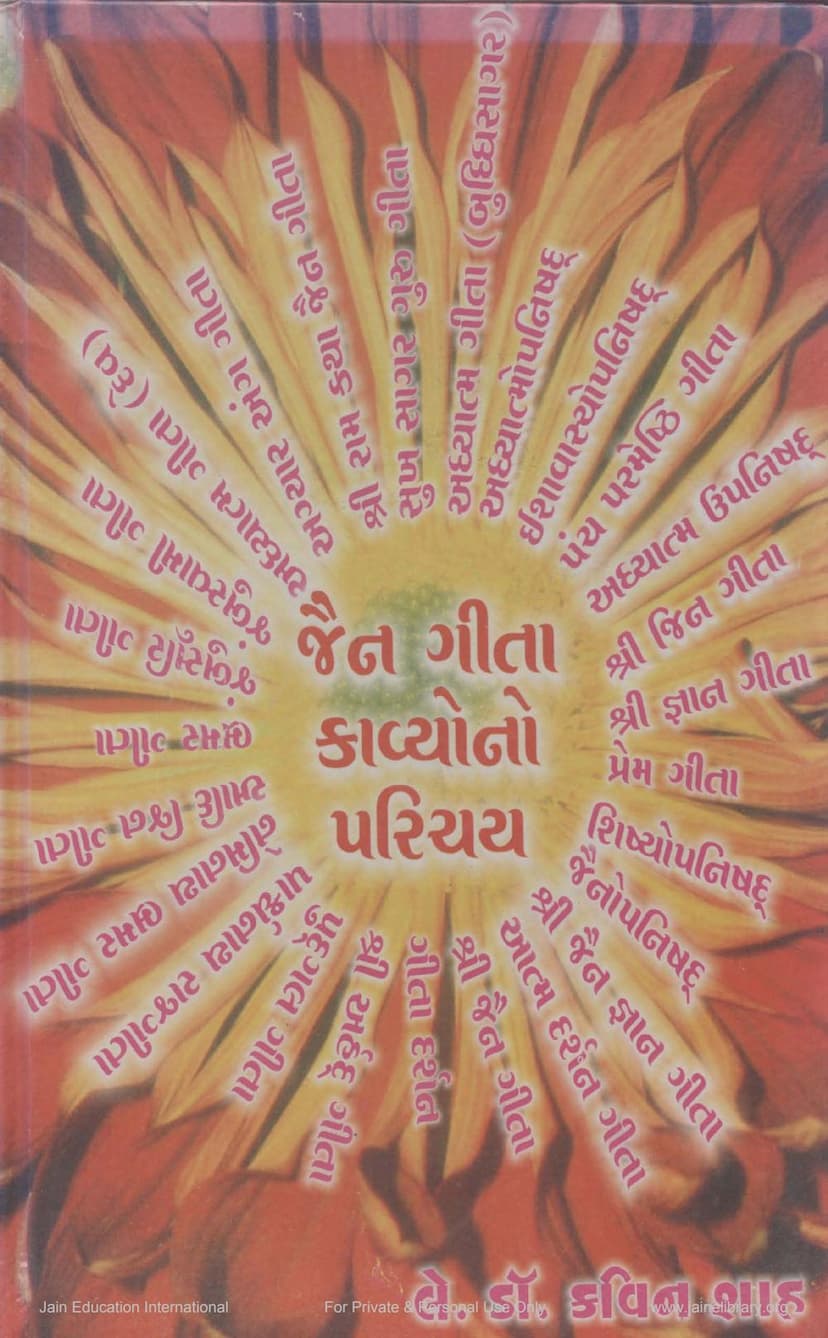 જૈન ગીતા
કાવ્યોનો
પરિચય
સુખ સાગર ગુરુ ગીતા
અધ્યાત્મ ગીતા (બુધ્ધિસાગર)
અધ્યાત્મોપનિષદ્
ઈશાવાસ્યોપનિષદ્
પંચ પરમેષ્ઠિ ગીતા
અધ્યાત્મ ઉપનિષદ્
શ્રી જિન ગીતા
શ્રી જ્ઞાન ગીતા
પ્રેમ ગીતા
શિષ્યોપનિષદ્
જૈનોપનિષદ્
શ્રી જૈન જ્ઞાન ગીતા
આત્મ દર્શન ગીતા
શ્રી જૈન ગીતા
ગીતા દર્શન
શ્રી અર્હદ્ ગીતા
પુદ્ગલ ગીતા
પાર્શ્વનાથ રાજગીતા
નેમિનાથ ભ્રમર ગીતા
આદિ જિન ગીતા
ભ્રમર ગીતા
જંબુસૂરિ ગીતા
જંબુસ્વામી ગીતા
અધ્યાત્મ ગીતા (દેવ)
અગ્યાર અંગ ગીતા
શ્રી રામ કથા જૈન ગીતા
લે. ડૉ. કવિન શાહ
Jain Education International
For Private & Personal Use Only
www.jainelibrary.org